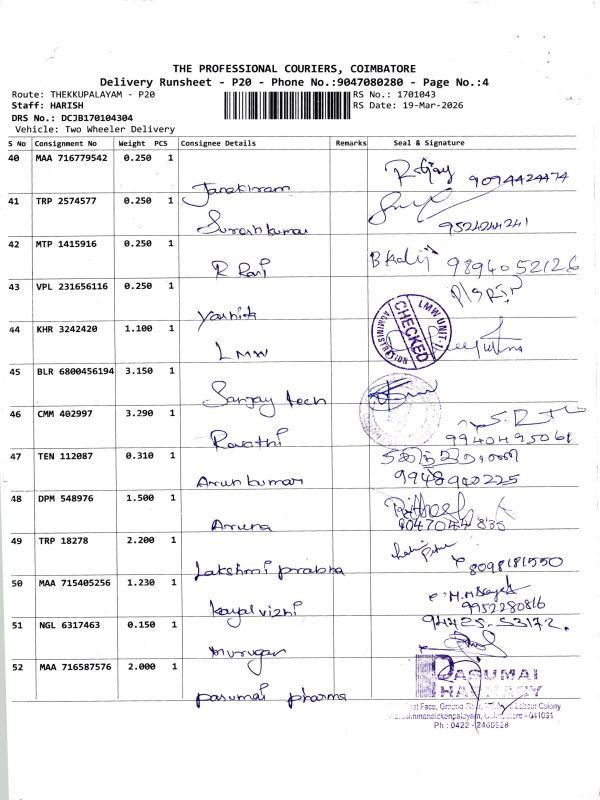 THE PROFESSIONAL COURIERS, COIMBATORE
Delivery Runsheet - P20 - Phone No.:9047080280 - Page No.:4
Route: THEKKUPALAYAM - P20 RS No.: 1701043
Staff: HARISH RS Date: 19-Mar-2026
DRS No.: DCJB170104304
Vehicle: Two Wheeler Delivery
S No Consignment No Weight PCS Consignee Details Remarks Seal & Signature
40 MAA 716779542 0.250 1
Janakiram 9094424474
41 TRP 2574577 0.250 1
Sureshkumar 9524244241
42 MTP 1415916 0.250 1
R Ravi 9894052126
43 VPL 231656116 0.250 1
44 KHR 3242420 1.100 1
LMW
LMW UNIT-II
CHECKED
ADMINISTRATION
45 BLR 6800456194 3.150 1
Sanjay tech
46 CMM 402997 3.290 1
Revathi 9940495061
47 TEN 112087 0.310 1
Arunkumar 9948940225
48 DPM 548976 1.500 1
Aruna 9047044830
49 TRP 18278 2.200 1
Lakshmi prabha 8098181550
50 MAA 715405256 1.230 1
kayalvizhi 9952280816
51 NGL 6317463 0.150 1
94425-53172.
murugan
52 MAA 716587576 2.000 1
pasumai pharma
PASUMAI
PHARMACY
Labour Colony
- 641031
Ph : 0422 - 2460626